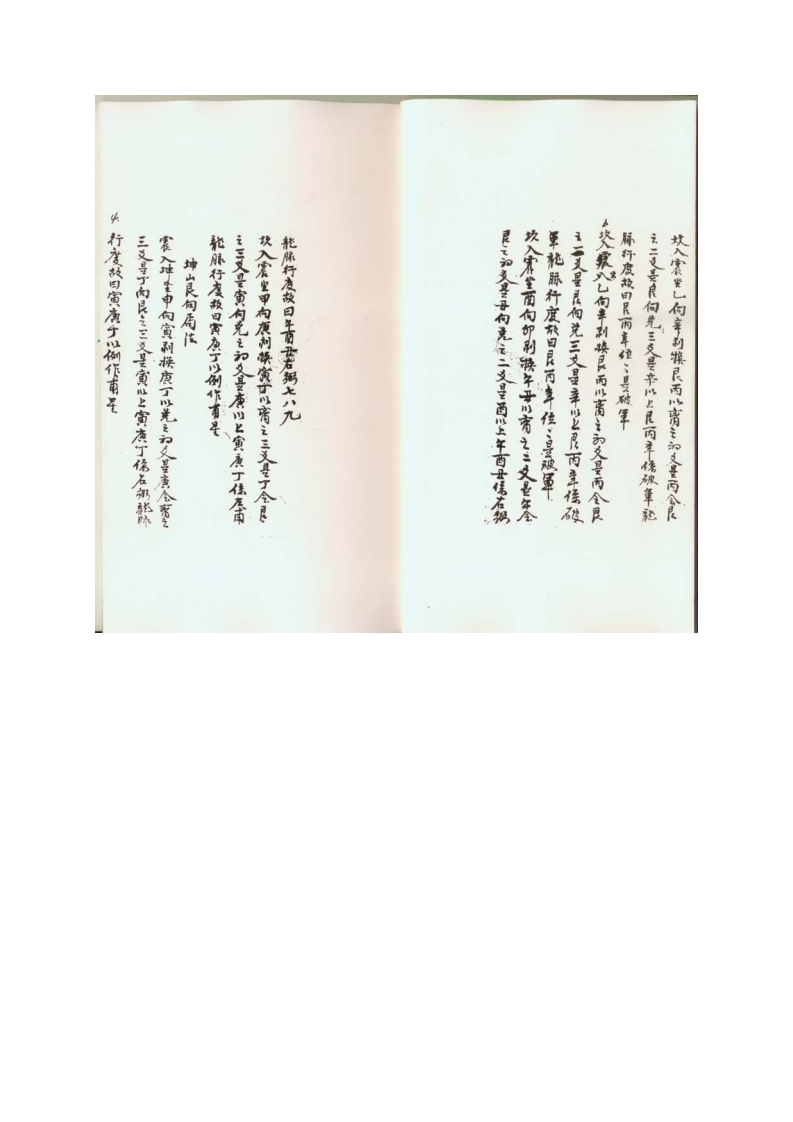 坎入震坐乙向辛剥換艮丙以离之初爻是丙會艮
之二爻是艮向兌三爻是辛以上艮丙辛係破軍龍
脉行度故曰艮丙辛位〻是破軍
坎入乙向辛剥換艮丙以离之初爻是丙會艮
之二爻是艮向兌三爻是辛以上艮丙辛係破
軍龍脉行度故曰艮丙辛位〻是破軍
坎入震坐酉向卯剥換午丑以离之二爻是午會
艮之初爻是丑向兌之二爻是酉以上午酉丑係右弼
龍脉行度故曰午酉丑右弼七八九
坎入震坐甲向庚剥換寅丁以离之三爻是丁會艮
之三爻是寅向兌之初爻是庚以上寅庚丁係左甫
龍脉行度故曰寅庚丁以例作甫星
坤山艮向局法
震入坤坐申向寅剥換庚丁以兌之初爻是庚會离之
三爻是丁向艮之三爻是寅以上寅庚丁係右弼龍脉
4.
行度故曰寅庚丁以例作甫星